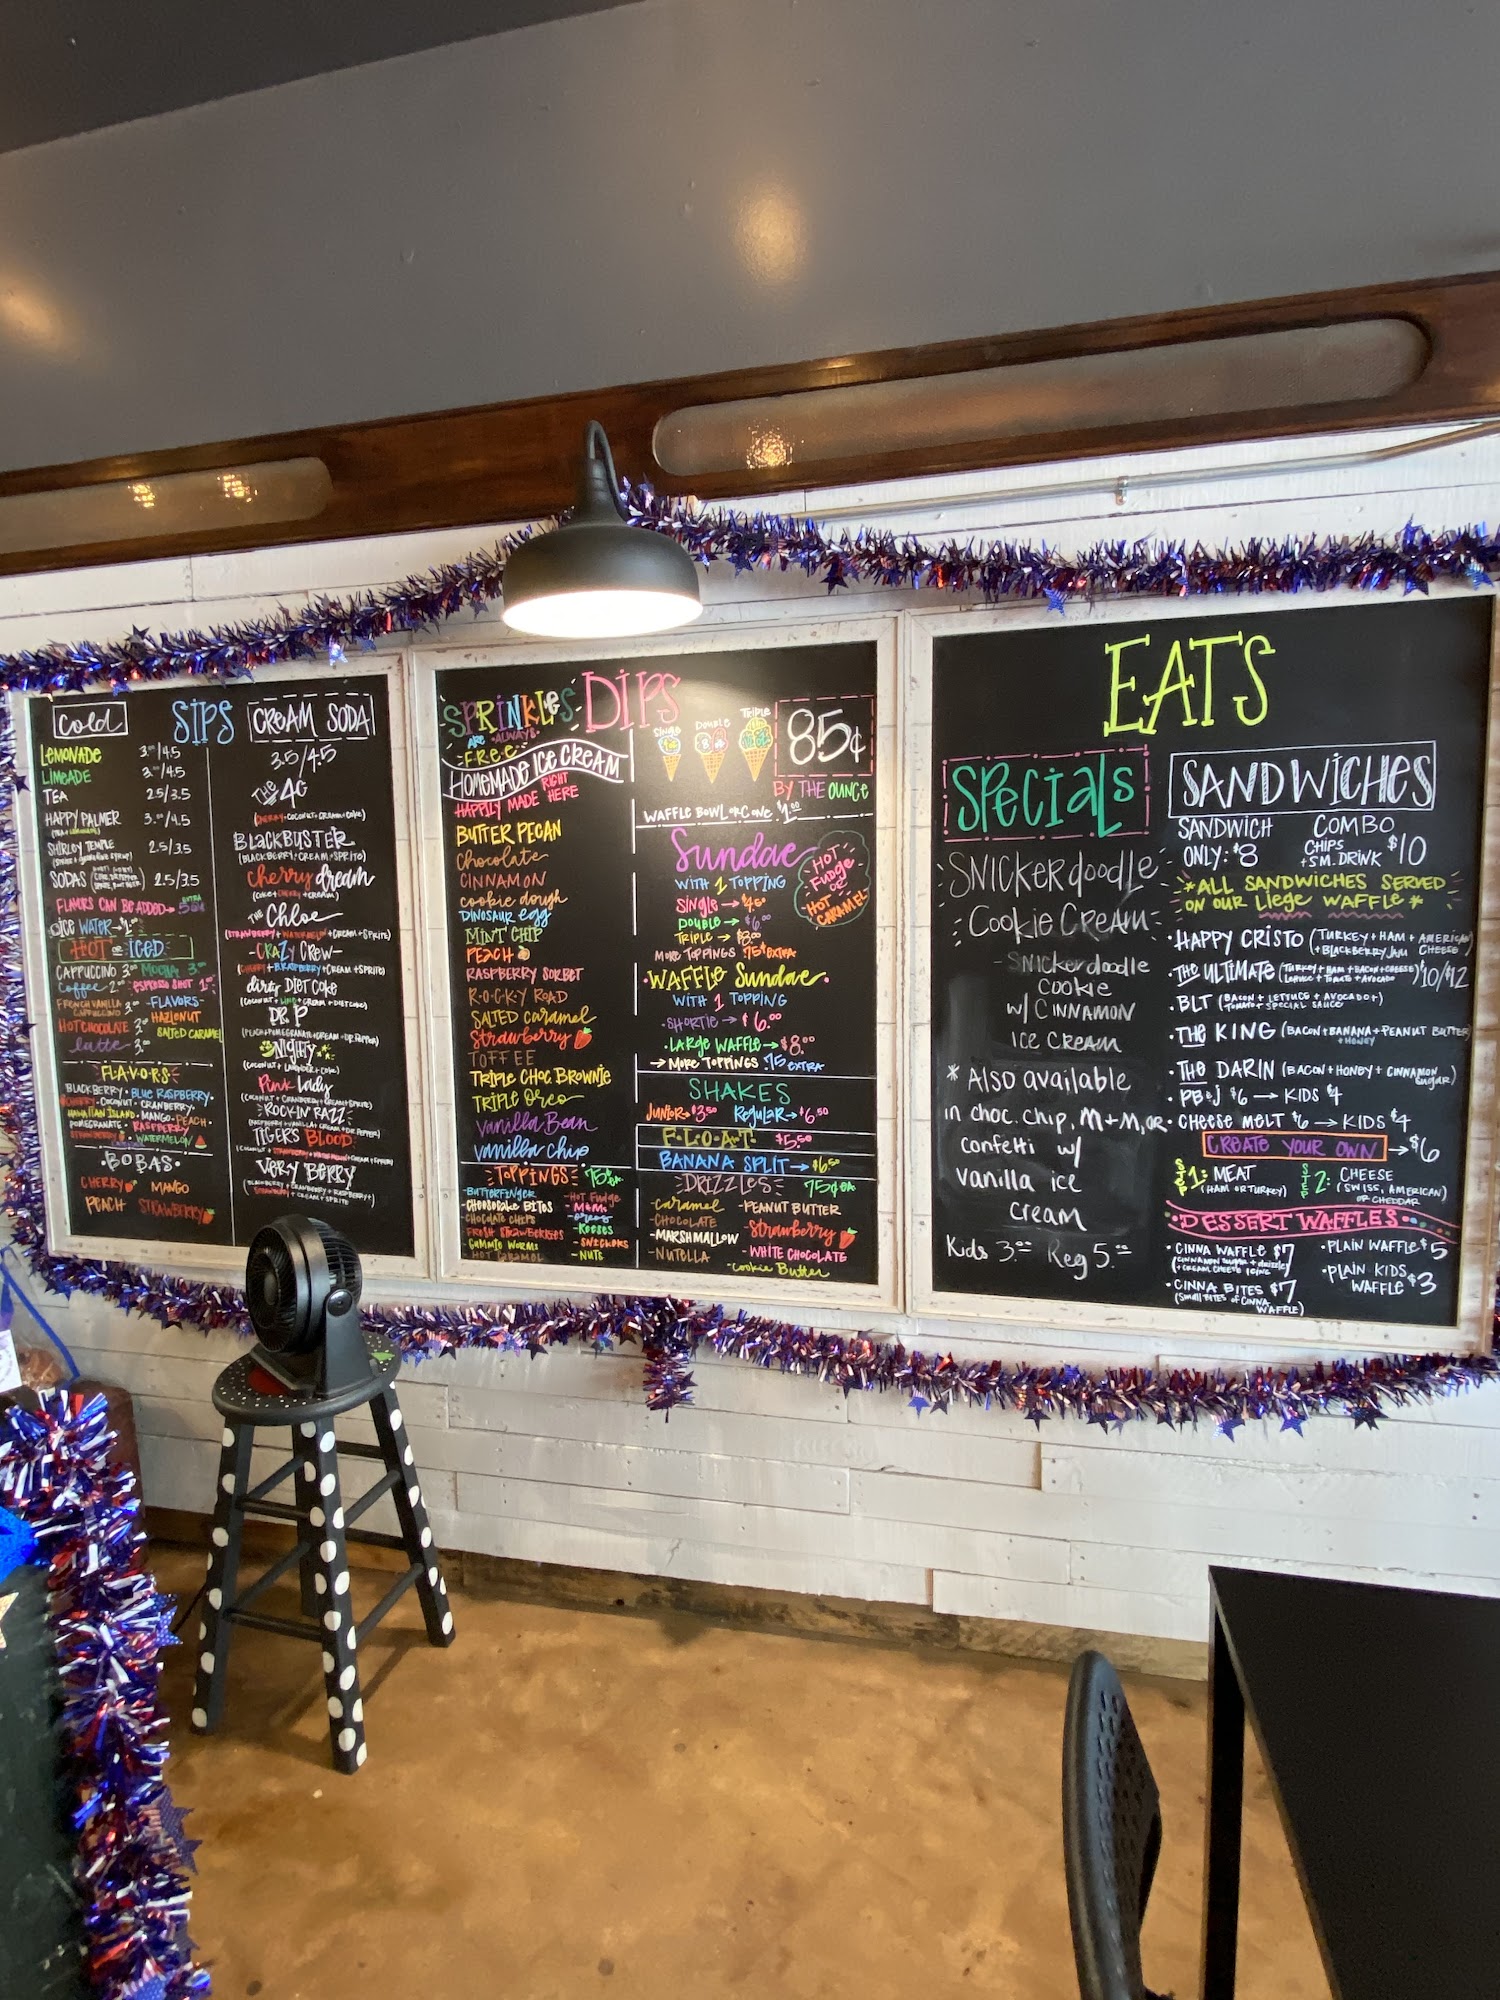 Cold
SIPS
LEMONADE 3.00/4.5
LIMEADE 3.00/4.5
TEA 2.5/3.5
HAPPY PALMER 3.00/4.5
(TEA + LEMONADE)
SHIRLEY TEMPLE 2.5/3.5
SODAS 2.5/3.5
FLAVORS CAN BE ADDED→ EXTRA 50¢
ICE WATER→$1.00
HOT OR ICED
CAPPUCCINO 3.00 MOCHA 3.00
COFFEE 2.00 ESPRESSO SHOT 1.00
FRENCH VANILLA CAPPUCCINO 3.00
-FLAVORS-
HAZLENUT
HOT CHOCOLATE 3.00
SALTED CARAMEL
latte 3.00
FLAVORS
BLACKBERRY • BLUE RASPBERRY •
CHERRY • COCONUT • CRANBERRY •
HAWAIIAN ISLAND • MANGO • PEACH •
POMEGRANATE • RASPBERRY
STRAWBERRY • WATERMELON
• BOBAS •
CHERRY MANGO
PEACH STRAWBERRY
CREAM SODA
3.5/4.5
THE 4C
(CHERRY + COCONUT + CREAM + COKE)
BLACKBUSTER
(BLACKBERRY + CREAM + SPRITE)
Cherry dream
(COKE + CHERRY + CREAM)
THE Chloe
(STRAWBERRY + WATERMELON + CREAM + SPRITE)
-CRAZY CREW-
(CHERRY + B.RASPBERRY + CREAM + SPRITE)
dirty DIET COKE
(COCONUT + LIME + CREAM + DIET COKE)
DR. P
(PEACH + POMEGRANATE + CREAM + DR. PEPPER)
NIGHTY
(COCONUT + LAVENDER + COKE)
Pink lady
(COCONUT + CRANBERRY + CREAM + SPRITE)
ROCKIN' RAZZ
(RASPBERRY + VANILLA + CREAM + DR. PEPPER)
TIGERS BLOOD
VERY BERRY
SPRINKLES
ARE ALWAYS
FREE
DIPS
HOMEMADE ICE CREAM
HAPPILY MADE RIGHT HERE
Single
Double
Triple
85¢
BY THE OUNCE
WAFFLE BOWL OR CONE $1.00
BUTTER PECAN
Chocolate
CINNAMON
cookie dough
DINOSAUR egg
MINT CHIP
PEACH
RASPBERRY SORBET
R•O•C•K•Y ROAD
SALTED caramel
Strawberry
TOFFEE
TRIPLE CHOC BROWNIE
TRIPLE Oreo
Vanilla Bean
Vanilla Chip
TOPPINGS 75¢ EA
- BUTTERFINGER
- CHEESECAKE BITES
- CHOCOLATE CHIPS
- FRESH STRAWBERRIES
- GUMMIE WORMS
- HOT CARAMEL
- HOT FUDGE
- M&M
- OREOS
- REESES
- SNICKERS
- NUTS
Sundae
HOT FUDGE OR HOT CARAMEL
WITH 1 TOPPING
SINGLE → $4.50
DOUBLE → $6.00
TRIPLE → $8.00
MORE TOPPINGS 75¢ EXTRA
• WAFFLE Sundae
WITH 1 TOPPING
• SHORTIE → $6.00
• LARGE WAFFLE → $8.00
→ MORE TOPPINGS .75 EXTRA
SHAKES
JUNIOR→$3.50 REGULAR→$6.50
F•L•O•A•T $5.50
BANANA SPLIT → $6.50
DRIZZLES 75¢ EA
- Caramel
- CHOCOLATE
- MARSHMALLOW
- NUTELLA
- PEANUT BUTTER
- Strawberry
- WHITE CHOCOLATE
- COOKIE BUTTER
EATS
SPECIALS
SNICKERdOODLE
Cookie CREAM
- SNICKERdOODLE
COOKIE
w/ CINNAMON
ICE CREAM
* Also available
in choc. chip, M+M, OR
confetti w/
vanilla ice
cream
Kids 3.00 Reg 5.00
SANDWICHES
SANDWICH ONLY: $8
COMBO CHIPS + SM. DRINK $10
*ALL SANDWICHES SERVED
ON OUR LIEGE WAFFLE*
• HAPPY CRISTO (TURKEY + HAM + AMERICAN CHEESE + BLACKBERRY JAM)
• THE ULTIMATE (TURKEY + HAM + BACON + CHEESE + LETTUCE + TOMATO + AVOCADO) $10/$12
• BLT (BACON + LETTUCE + AVOCADO + TOMATO + SPECIAL SAUCE)
• THE KING (BACON + BANANA + PEANUT BUTTER + HONEY)
• THE DARIN (BACON + HONEY + CINNAMON SUGAR)
• PB&J $6 → KIDS $4
• CHEESE MELT $6 → KIDS $4
CREATE YOUR OWN → $6
STEP 1: MEAT (HAM OR TURKEY)
STEP 2: CHEESE (SWISS, AMERICAN) OR CHEDDAR
• DESSERT WAFFLES •
• CINNA WAFFLE $7
(CINNAMON SUGAR + drizzle) + CREAM CHEESE ICING
• CINNA BITES $7
(SMALL BITES OF CINNA WAFFLE)
• PLAIN WAFFLE $5
• PLAIN KIDS WAFFLE $3